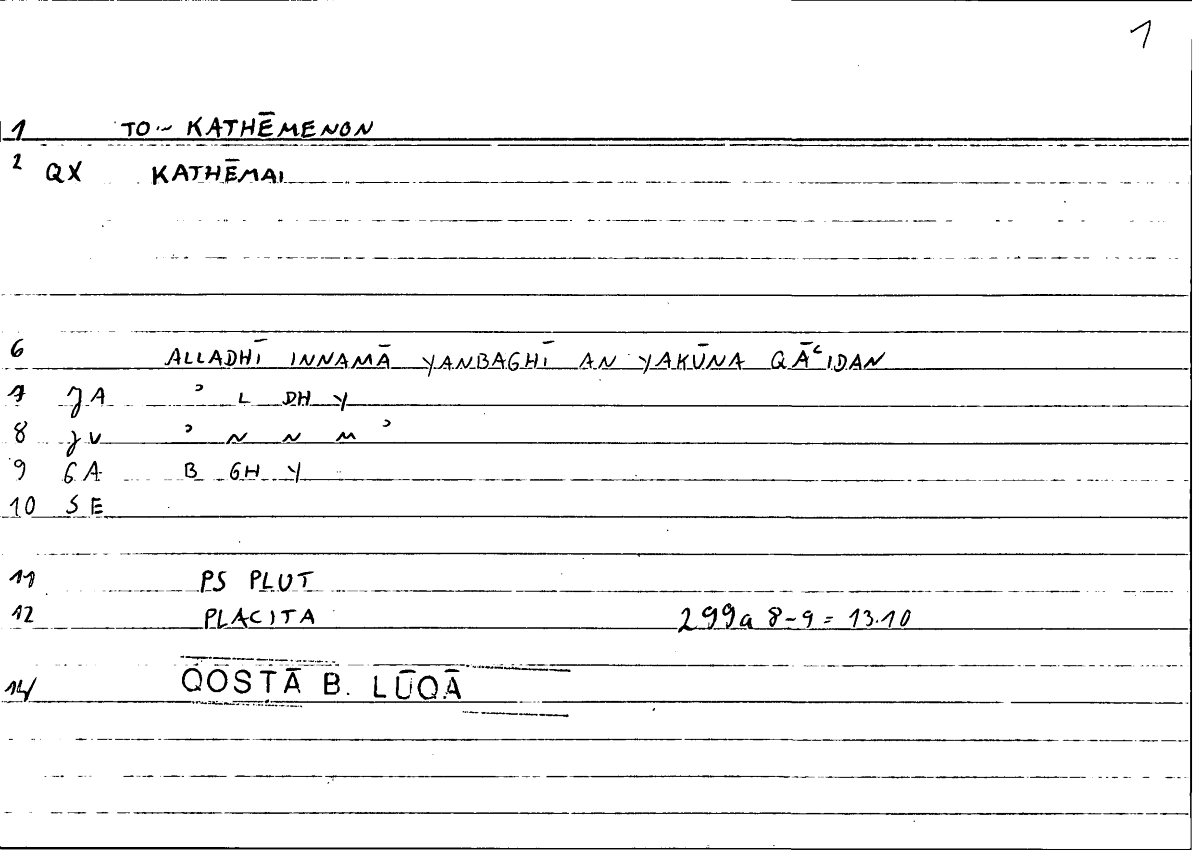 1
1 TO ~ KATHĒMENON
2 QX KATHĒMAI
6 ALLADHĪ INNAMĀ YANBAGHĪ AN YAKŪNA QĀʿIDAN
7 JA ʾ L DH Y
8 JU ʾ N N M ʾ
9 GA B GH Y
10 SE
11 PS PLUT
12 PLACITA 299a 8-9 = 13.10
14 QOSTĀ B. LŪQĀ